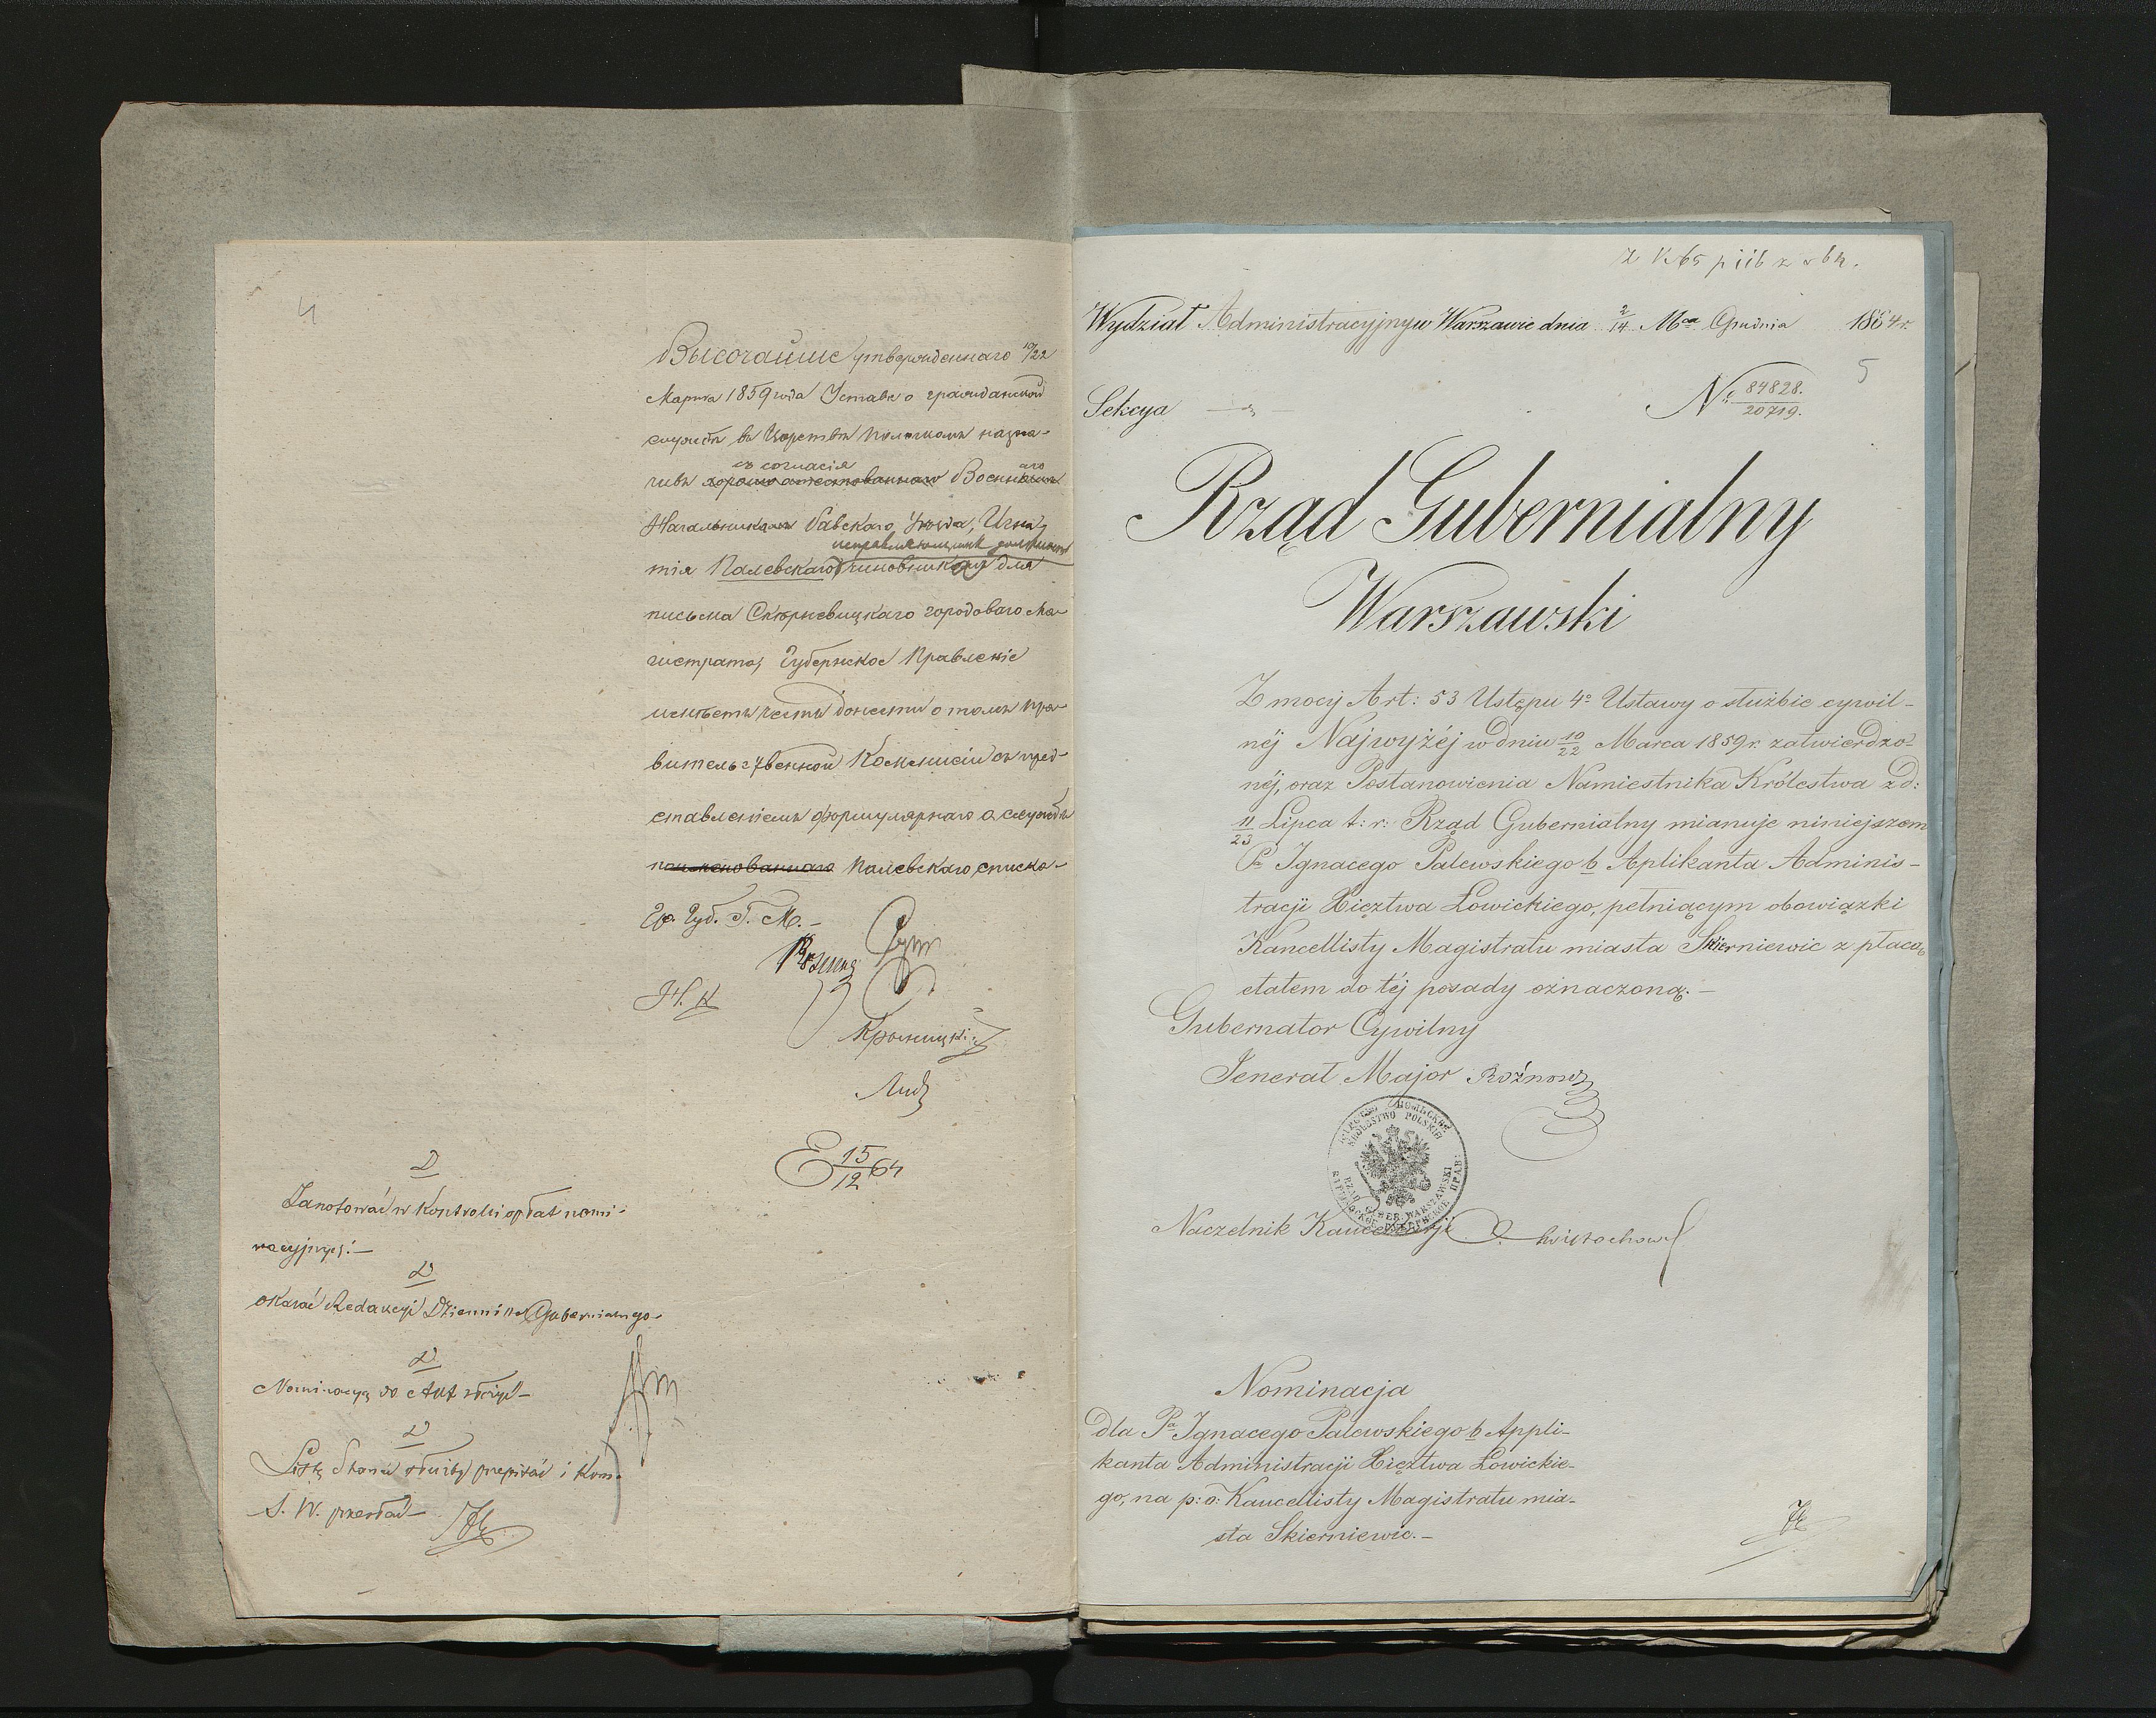 4
Высочайше утвержденнаго 10/22
Марта 1859 года Устава о гражданской
службѣ въ Царствѣ Польскомъ назна-
съ согласія
чивъ хорошо аттестованнаго Военнаго
Начальника Равскаго Уѣзда, Игна-
исправляющимъ должность
тія Палевскаго чиновника для
письма Скерневицкаго городоваго Ма-
гистрата, Губернское Правленіе
имѣетъ честь донести о томъ Пра-
вительственной Коммисіи съ пред-
ставленіемъ формулярнаго о службѣ
поименованнаго Палевскаго списка.
Гр. Губ. Г. М.
Н. К.
15/12 64
D
Zanotować w Kontrolli opłat nomi-
nacyjnych.
D
okazać Redakcyi Dziennika Gubernialnego
D
Nominacyą do Akt złożyć
D
Listę Stanu służby przepisać i Kom.
S. W. przesłać
Wydział Administracyjny w Warszawie dnia 2/14 Mca Grudnia 1864 r.
5
Sekcya
No 84828./20719.
Rząd Gubernialny
Warszawski
Z mocy Art: 53 Ustępu 4o Ustawy o służbie cywil-
néj Najwyżéj w dniu 10/22 Marca 1859 r. zatwierdzo-
néj, oraz Postanowienia Namiestnika Królestwa z d:
11/23 Lipca t: r: Rząd Gubernialny mianuje niniejszem
Pa Ignacego Palewskiego b Aplikanta Adminis-
tracji Xięztwa Łowickiego, pełniącym obowiązki
Kancellisty Magistratu miasta Skierniewic z płacą
etatem do téj posady oznaczoną.
Gubernator Cywilny
Jenerał Major Rożnow
KRÓLESTWO POLSKIE
RZĄD GUBER. WARSZAWSKI
Naczelnik Kancellarji
Nominacja
dla Pa Ignacego Palewskiego b Appli-
kanta Administracji Xięztwa Łowickie-
go, na p: o: Kancellisty Magistratu mia-
sta Skierniewic.